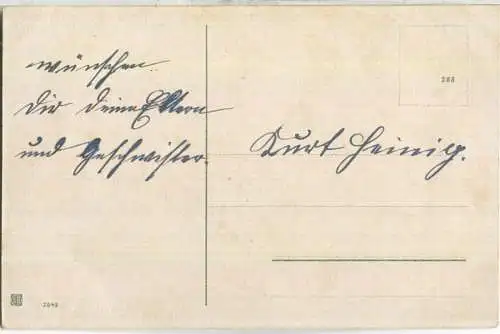 wünschen
Dir Deine Eltern
und Geschwister.
Kurt Heinig.
288